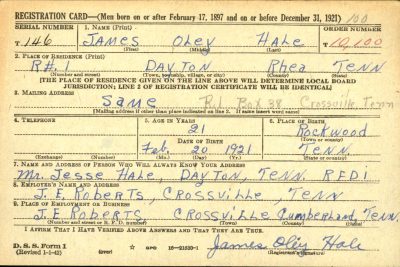 REGISTRATION CARD—(Men born on or after February 17, 1897 and on or before December 31, 1921) 100
SERIAL NUMBER 1. NAME (Print) ORDER NUMBER
T 146 JAMES Oley Hale 10,100
(First) (Middle) (Last)
2. PLACE OF RESIDENCE (Print)
R#. 1 DAYTON Rhea Tenn
(Number and street) (Town, township, village, or city) (County) (State)
[THE PLACE OF RESIDENCE GIVEN ON THE LINE ABOVE WILL DETERMINE LOCAL BOARD
JURISDICTION; LINE 2 OF REGISTRATION CERTIFICATE WILL BE IDENTICAL]
3. MAILING ADDRESS
Same Rt. Box 38 Crossville, Tenn
[Mailing address if other than place indicated on line 2. If same insert word same]
4. TELEPHONE 5. AGE IN YEARS 6. PLACE OF BIRTH
21 Rockwood
DATE OF BIRTH (Town or county)
Feb. 20 1921 Tenn.
(Exchange) (Number) (Mo.) (Day) (Yr.) (State or country)
7. NAME AND ADDRESS OF PERSON WHO WILL ALWAYS KNOW YOUR ADDRESS
Mr. Jesse Hale, DAYTON, TENN. R.F.D.1
8. EMPLOYER'S NAME AND ADDRESS
J. E. ROBERTS, CROSSVILLE, TENN
9. PLACE OF EMPLOYMENT OR BUSINESS
J. E. ROBERTS CROSSVILLE Cumberland, Tenn.
(Number and street or R. F. D. number) (Town) (County) (State)
I AFFIRM THAT I HAVE VERIFIED ABOVE ANSWERS AND THAT THEY ARE TRUE.
D. S. S. Form 1 (over) James Oley Hale
(Revised 1-1-42) 16—21630-1 (Registrant's signature)